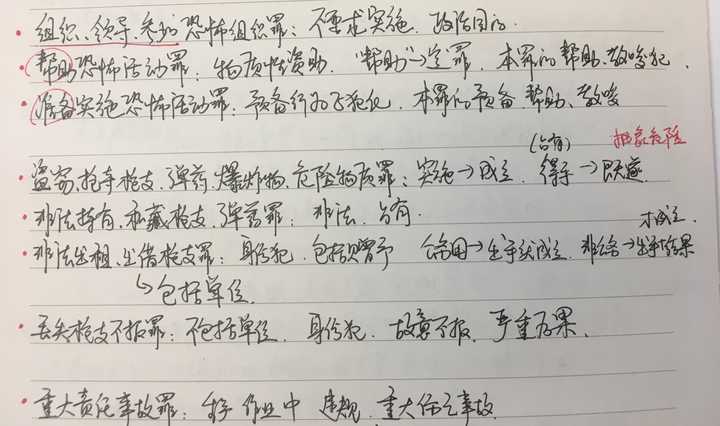 ·组织、领导、参加恐怖组织罪：不要求实施、政治目的.
·帮助恐怖活动罪：物质性资助.“帮助”→定罪.本罪的帮助、教唆犯.
·准备实施恐怖活动罪：预备行为正犯化.本罪的预备、帮助、教唆
(占有) 抽象危险
·盗窃、抢夺枪支、弹药、爆炸物、危险物质罪：实施→成立.得手→既遂
·非法持有、私藏枪支、弹药罪：非法.占有.
才成立.
·非法出租、出借枪支罪：身份犯.包括赠予 公用→出手就成立.非公→出手+结果
↳包括单位.
·丢失枪支不报罪：不包括单位.身份犯.故意不报.严重后果.
·重大责任事故罪：作业中 违规.重大伤亡事故.